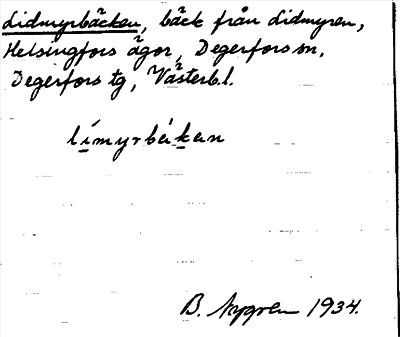 Lidmyrbäcken, bäck från Lidmyren,
Helsingfors ägor, Degerfors sn,
Degerfors tg, Västerb.l.
límyrbäkan
B. Nygren 1934.